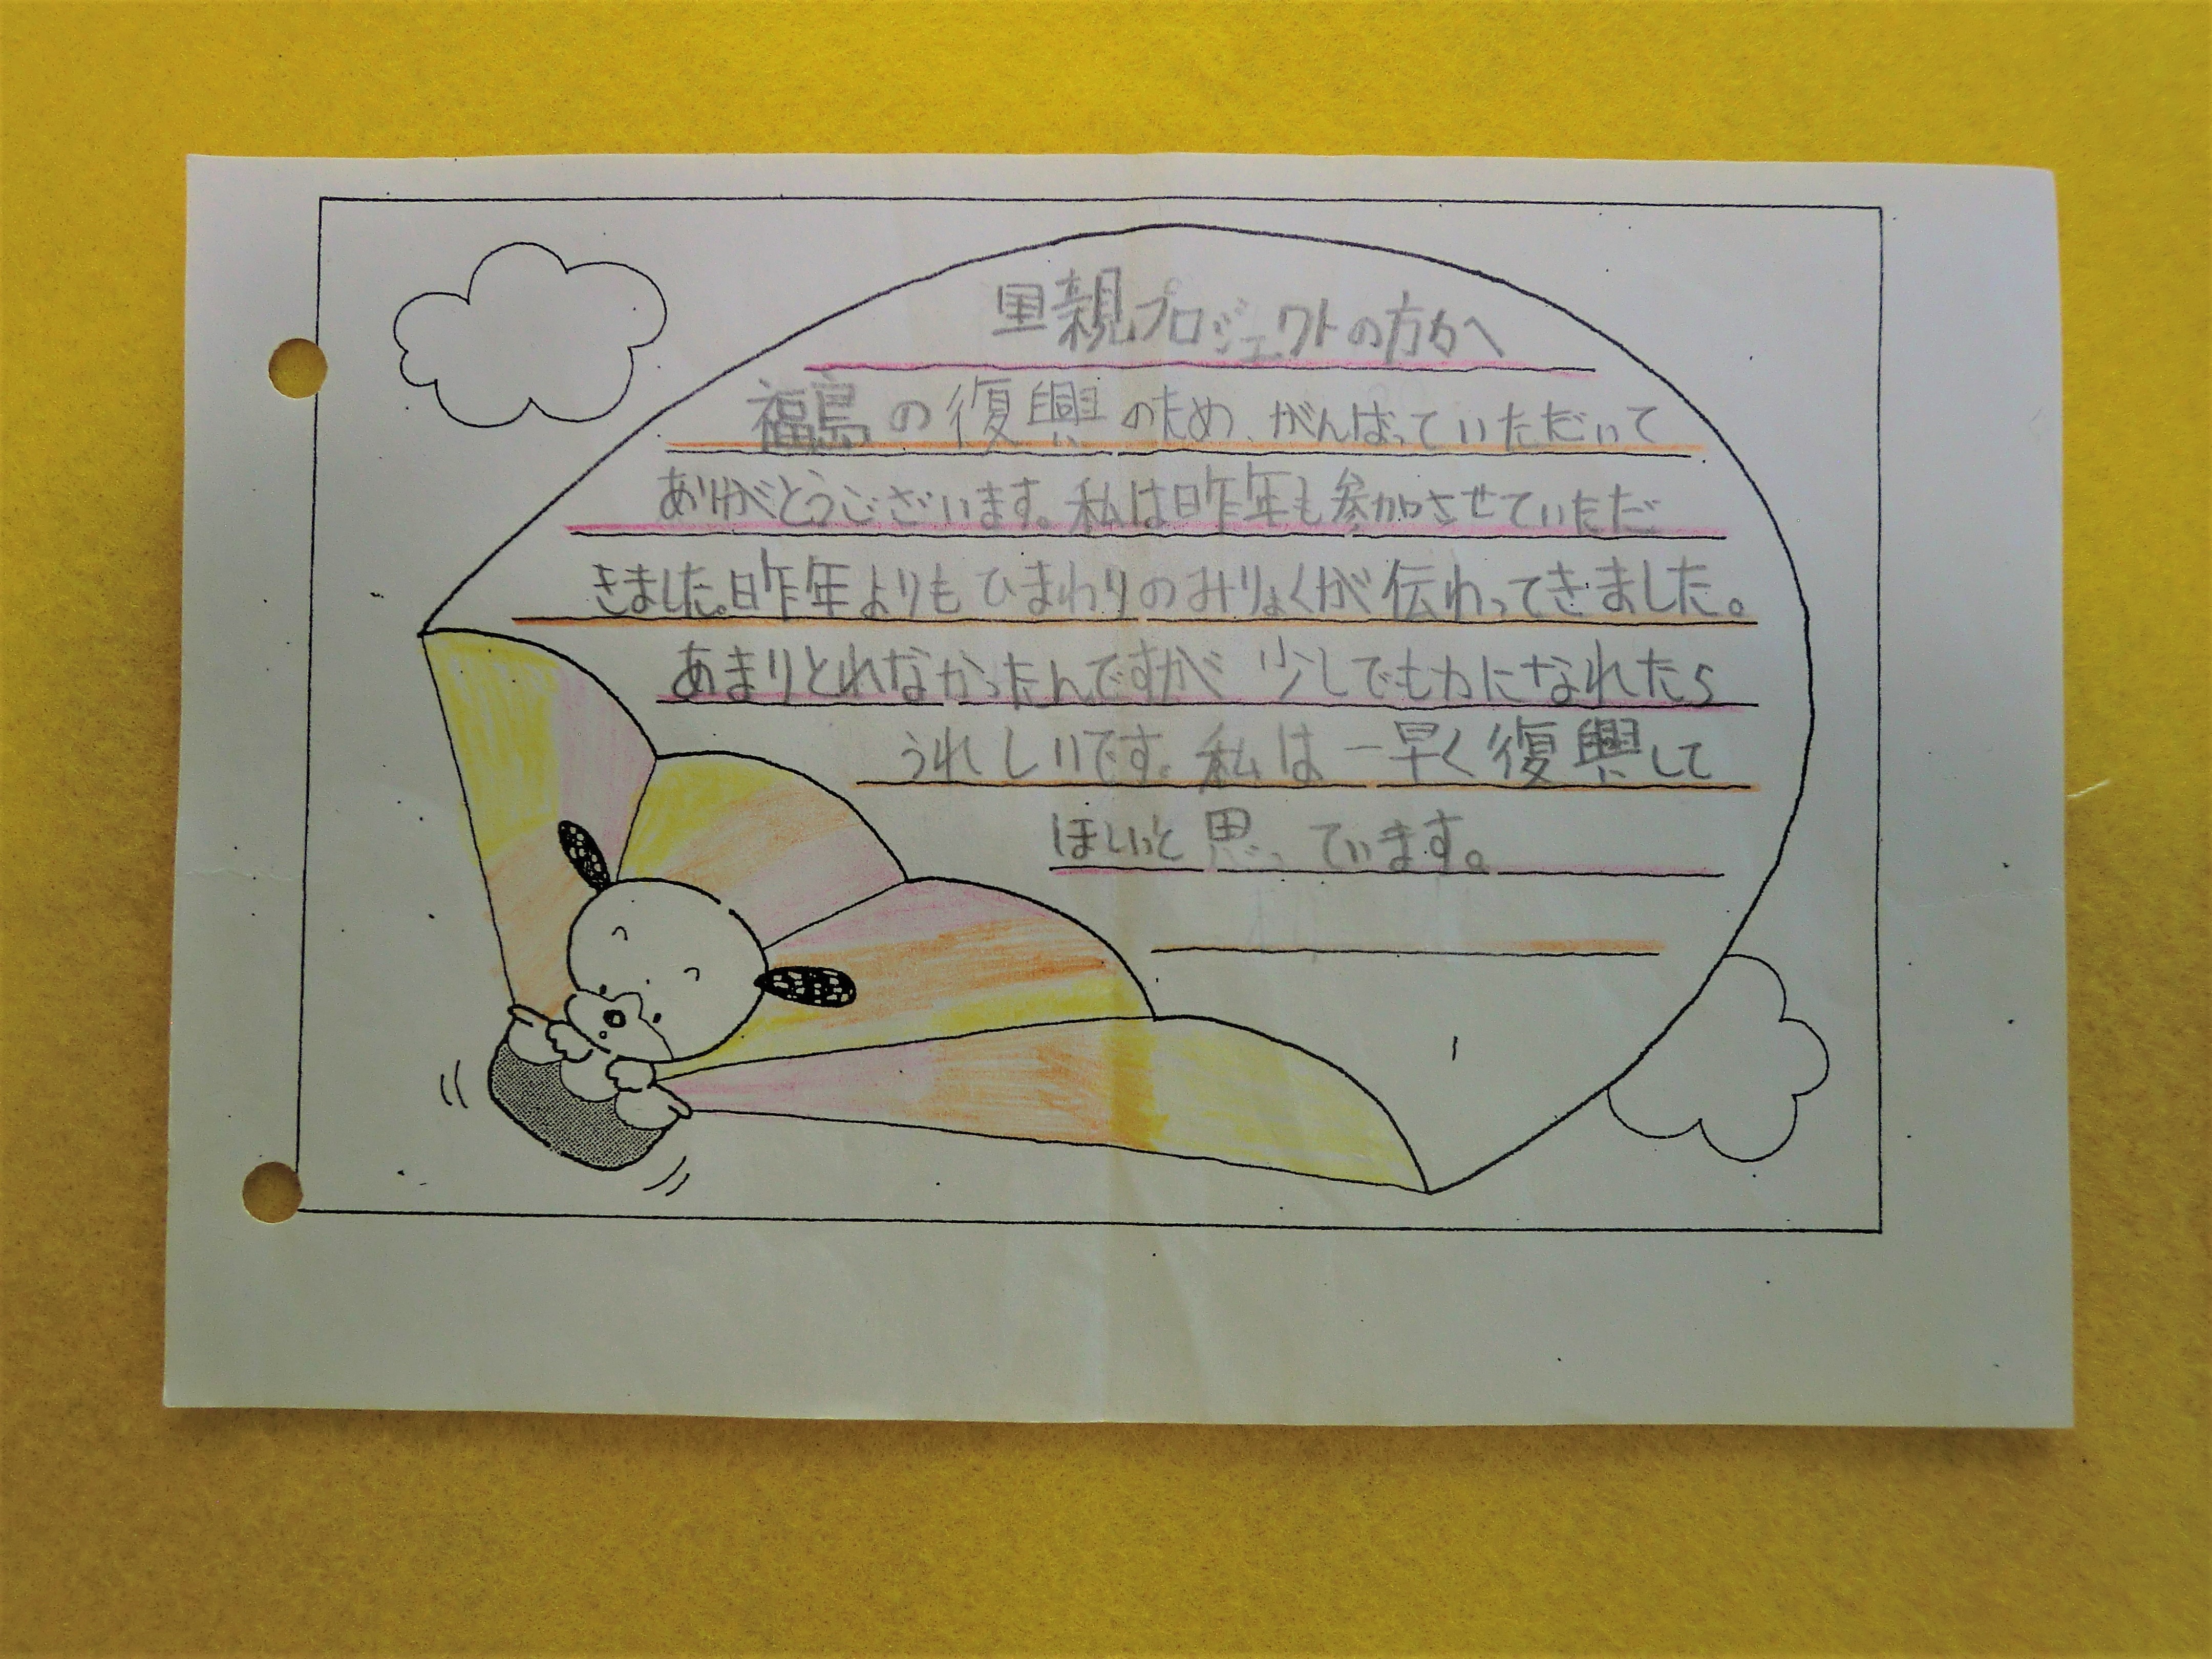 里親プロジェクトの方々へ
福島の復興のため、がんばっていただいて
ありがとうございます。私は昨年も参加させていただ
きました。昨年よりもひまわりのみりょくが伝わってきました。
あまりとれなかったんですが少しでも力になれたら
うれしいです。私は一早く復興して
ほしいと思っています。